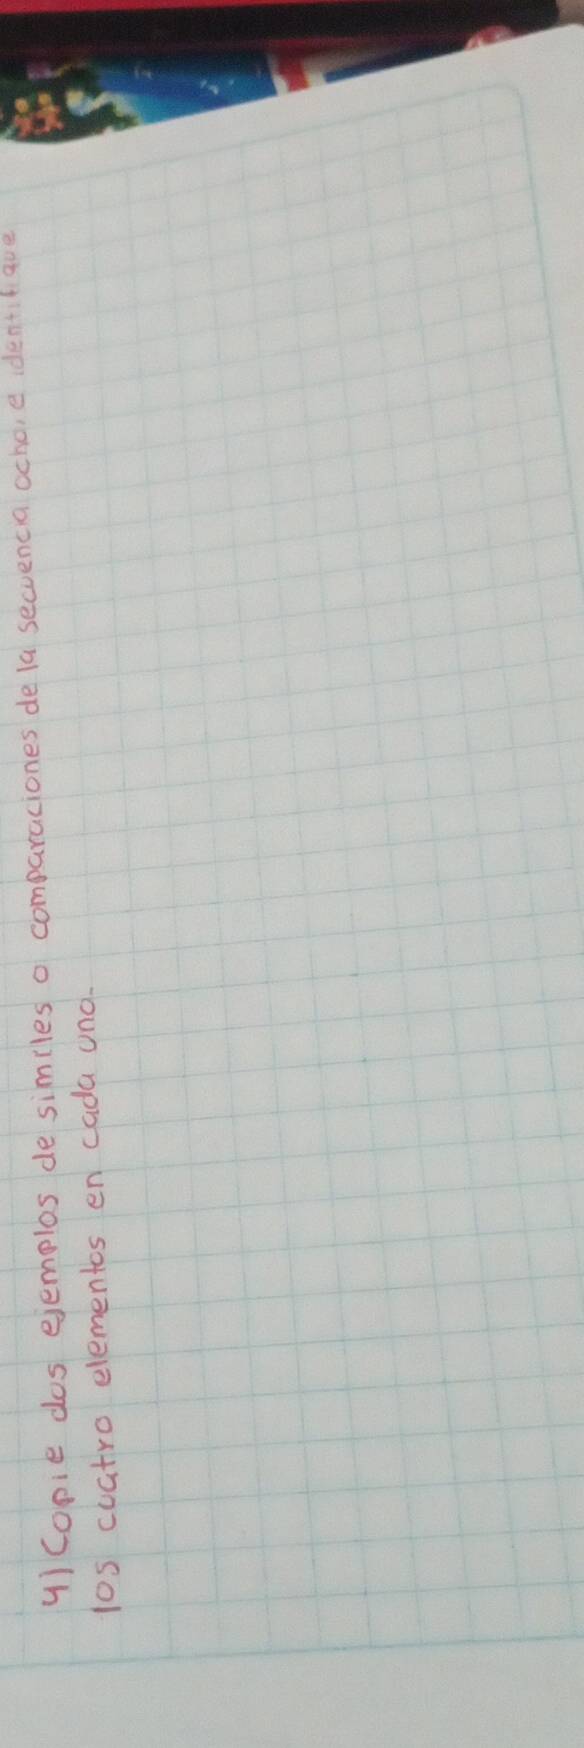 4) Copie dos ejemplos de similes o comparaciones de la secuencia ocho, e identifique
los cuatro elementos en cada uno.